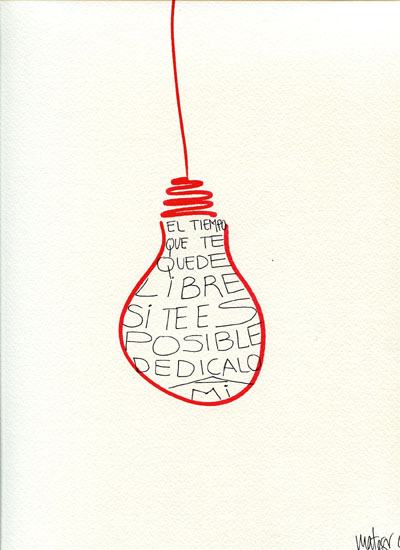 EL TIEMPO
QUE TE
QUEDE
LiBRE
Si TE ES
POSIBLE
DEDICALO
A
Mi